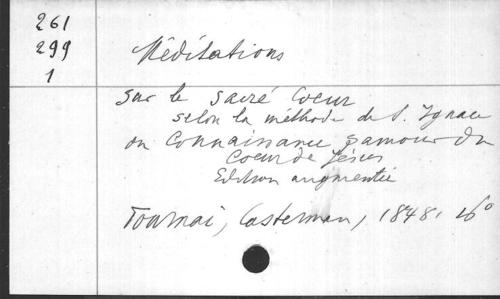 261
299
1
Méditations
sur le sacré Coeur
selon la méthode de S. Ignace
ou Connaissance & amour du
Coeur de Jésus
Edition augmentée
Tournai, Casterman, 1848, 16°